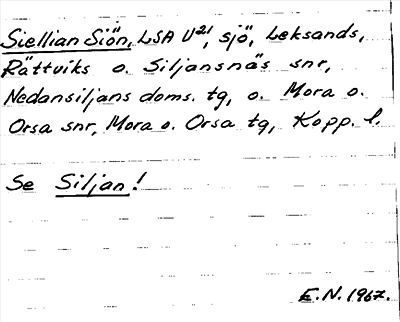 Siellian Siön, LSA U²¹, sjö, Leksands,
Rättviks o. Siljansnäs snr,
Nedansiljans doms. tg, o. Mora o.
Orsa snr, Mora o. Orsa tg, Kopp. l.
Se Siljan!
E.N. 1967.